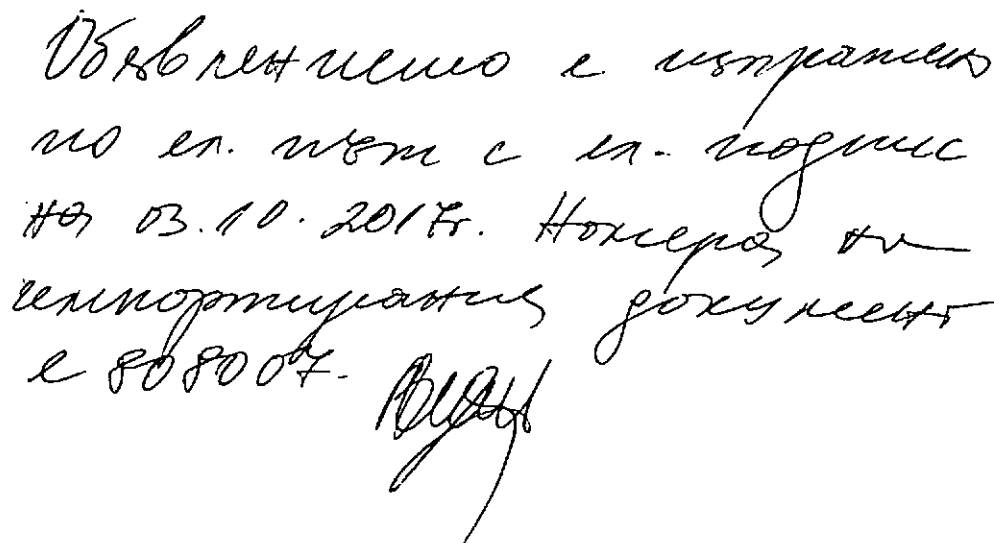 Обявлението е изпратено
по ел. път с ел. подпис
на 03.10.2017г. Номера на
импортирания документ
е 808007.